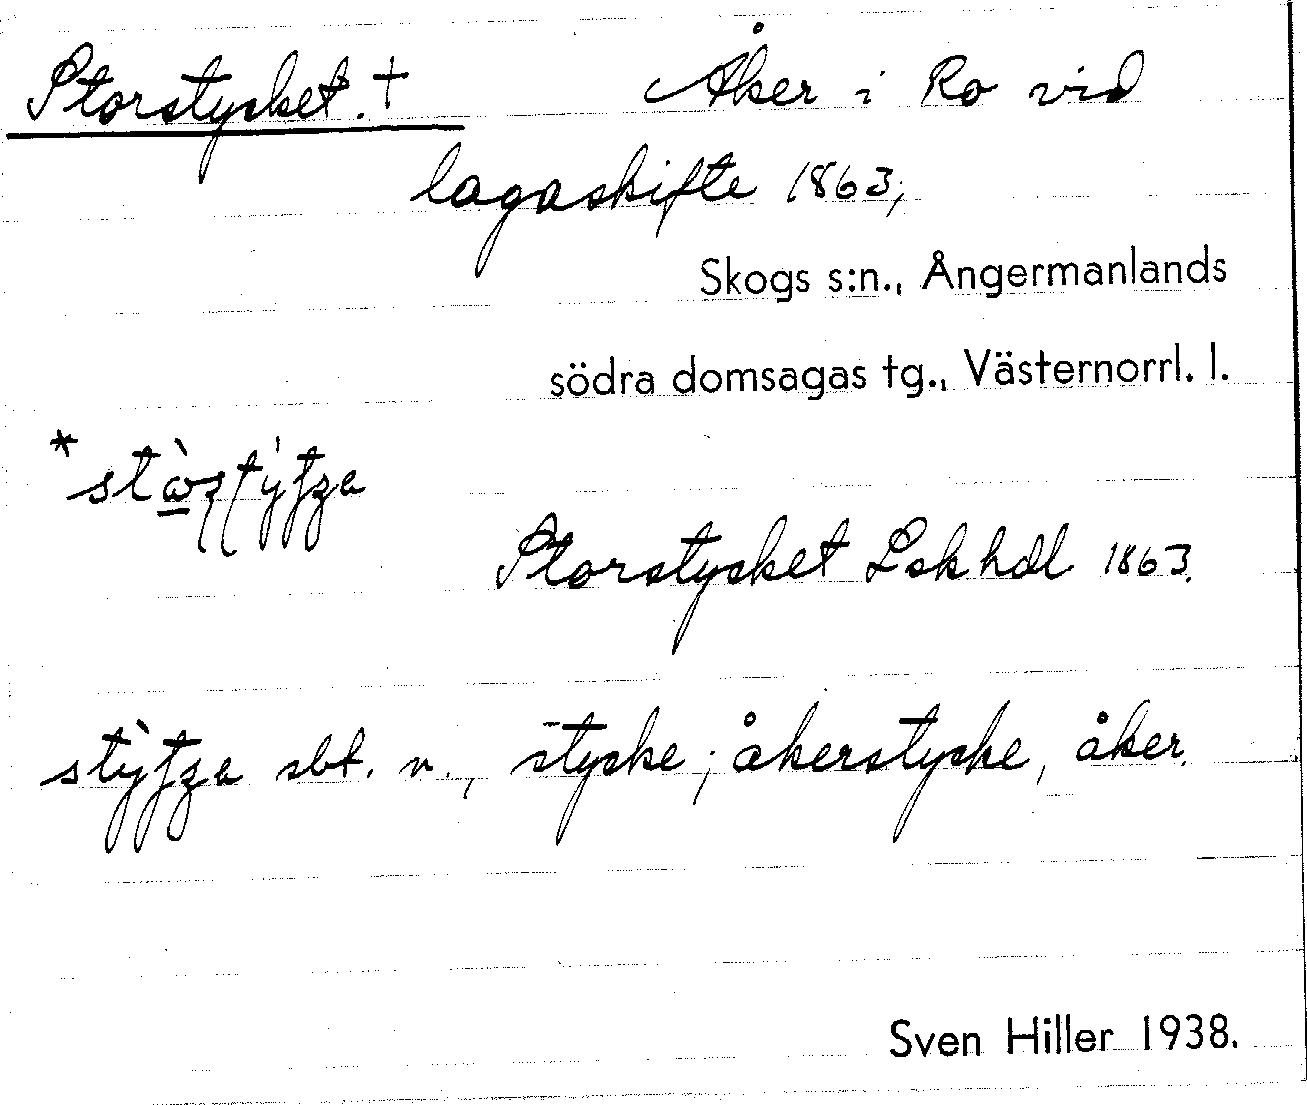 Storstycket. + Åker i Ro vid
lagaskifte 1863,
Skogs s:n., Ångermanlands
södra domsagas tg., Västernorrl. l.
Storstycket Lskhdl 1863.
sbt. n., stycke; åkerstycke, åker.
Sven Hiller 1938.